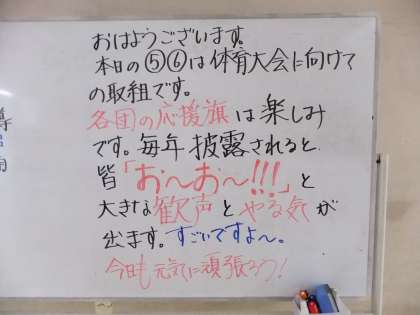 おはようございます。
本日の⑤⑥は体育大会に向けて
の取組です。
各団の応援旗は楽しみ
です。毎年披露されると
皆「お〜お〜!!!」と
大きな歓声とやる気が
出ます。すごいですよ〜。
今日も元気に頑張ろう!